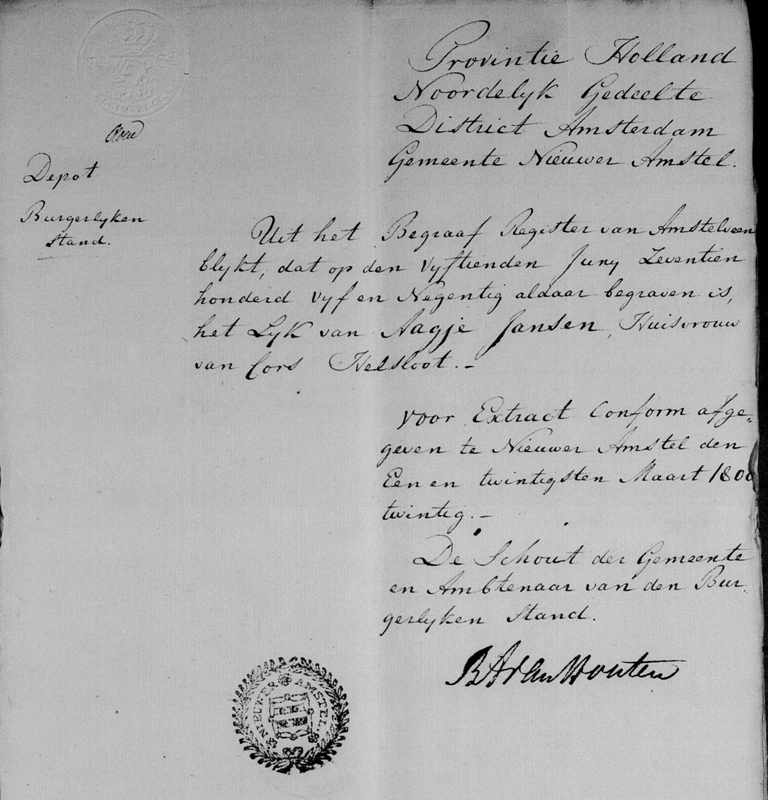 Provintie Holland
Noordelyk Gedeelte
District Amsterdam
Gemeente Nieuwer Amstel.
Depot
Burgerlyken
Stand.
Uit het Begraaf Register van Amstelveen
blykt, dat op den Vyftienden Juny Zeventien
honderd Vyf en Negentig aldaar begraven is,
het Lyk van Aagje Jansen, Huisvrouw
van Cors Helsloot.-
Voor Extract Conform afge,
geven te Nieuwer Amstel den
Een en twintigsten Maart 1800
twintig.-
De Schout der Gemeente
en Ambtenaar van den Bur,
gerlyken Stand.
BHvanHouten
NIEUWER AMSTEL